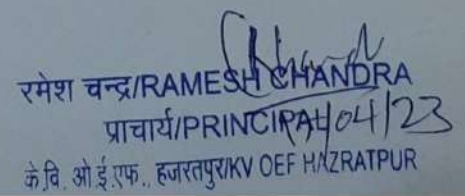 रमेश चन्द्र/RAMESH CHANDRA
प्राचार्य/PRINCIPAL
04/23
के.वि. ओ.ई.एफ., हजरतपुर/KV OEF HAZRATPUR